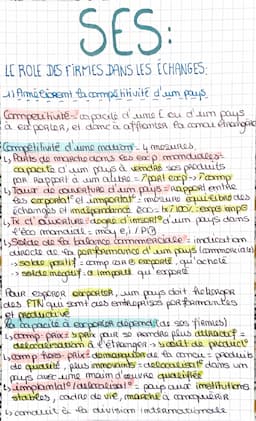 SES:
LE ROLE DES FIRMES DANS LES ÉCHANGES:
1) Améliorent la compétitivité d'un pays
Compétitivité = capacité d'une E ou d'un pays
à exporter, et donc à affronter la concu étrangère
Compétitivité d'une nation = 4 mesures
↳ Parts de marché dans les exp mondiales =
capacité d'un pays à vendre ses produits
par rapport à un autre = ↗part exp → ↗comp
↳ Taux de couverture d'un pays = rapport entre
les exportat° et importat° = mesure équilibre des
échanges et indépendance éco
↳ Tx d'ouverture = degré d'ouvert° d'un pays dans
l'éco mondiale =
↳ Solde de la balance commerciale = indicateur
directe de la performance d'un pays (commerciale)
→ solde positif = exporté, qu'acheté
→ solde négatif = a importé qu'exporté
Pour espérer exporter, un pays doit héberger
des FTN qui sont des entreprises performantes
et productive
La capacité à exporter dépend (de ses firmes)
↳ comp prix = prix pour se rendre plus attractif =
délocalisation à l'étranger → product°
↳ comp hors-prix = démarquer de la concu = produits
de qualité, plus innovants = délocalisat° dans un
pays avec une main d'œuvre qualifiée
↳ implantat°/délocalisat° = pays aux institutions
stables, cadre de vie, marché à conquérir
↳ conduit à la division internationale